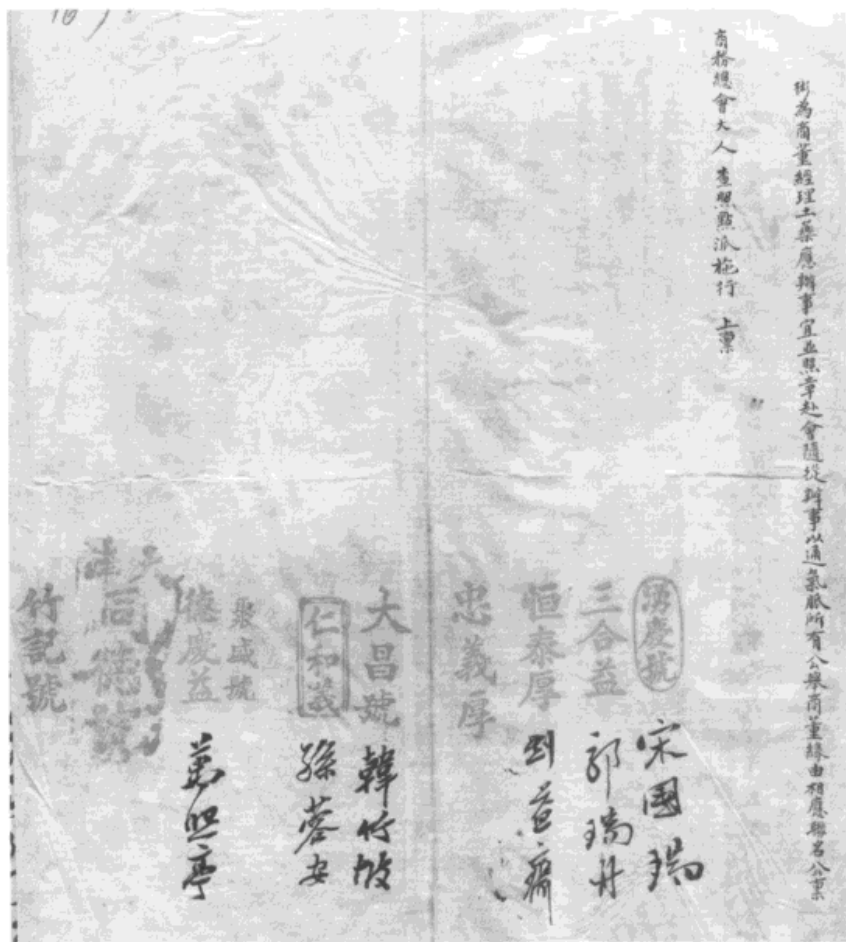 街為商董經理土藥應辦事宜並照章赴會隨從辦事以通氣脈所有公舉商董緣由相應聯名公稟
商務總會大人 查照點派施行 上稟
湧慶號 宋國瑞
三合益 郭瑞丹
恒泰厚 劉 齋
忠義厚
大昌號 韓竹
仁和義 孫蓉安
聚盛號
德慶益 照亭
同德號
竹記號
16